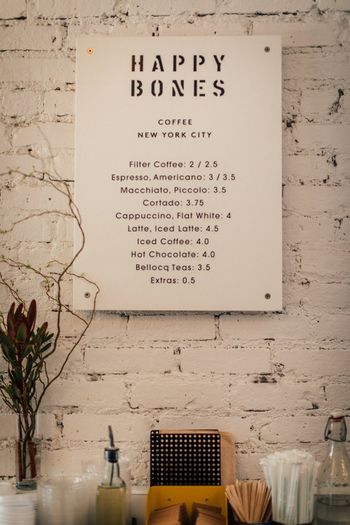 HAPPY
BONES
COFFEE
NEW YORK CITY
Filter Coffee: 2 / 2.5
Espresso, Americano: 3 / 3.5
Macchiato, Piccolo: 3.5
Cortado: 3.75
Cappuccino, Flat White: 4
Latte, Iced Latte: 4.5
Iced Coffee: 4.0
Hot Chocolate: 4.0
Bellocq Teas: 3.5
Extras: 0.5